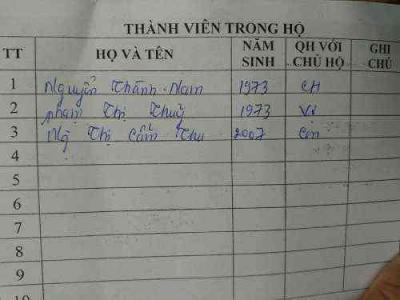 THÀNH VIÊN TRONG HỘ
TT HỌ VÀ TÊN NĂM SINH QH VỚI CHỦ HỘ GHI CHÚ
1 Nguyễn Thành Nam 1973 CH
2 Phạm Thị Thuỷ 1973 Vợ
3 Thị Cẩm Thu 2007 Con
4
5
6
7
8
9
10